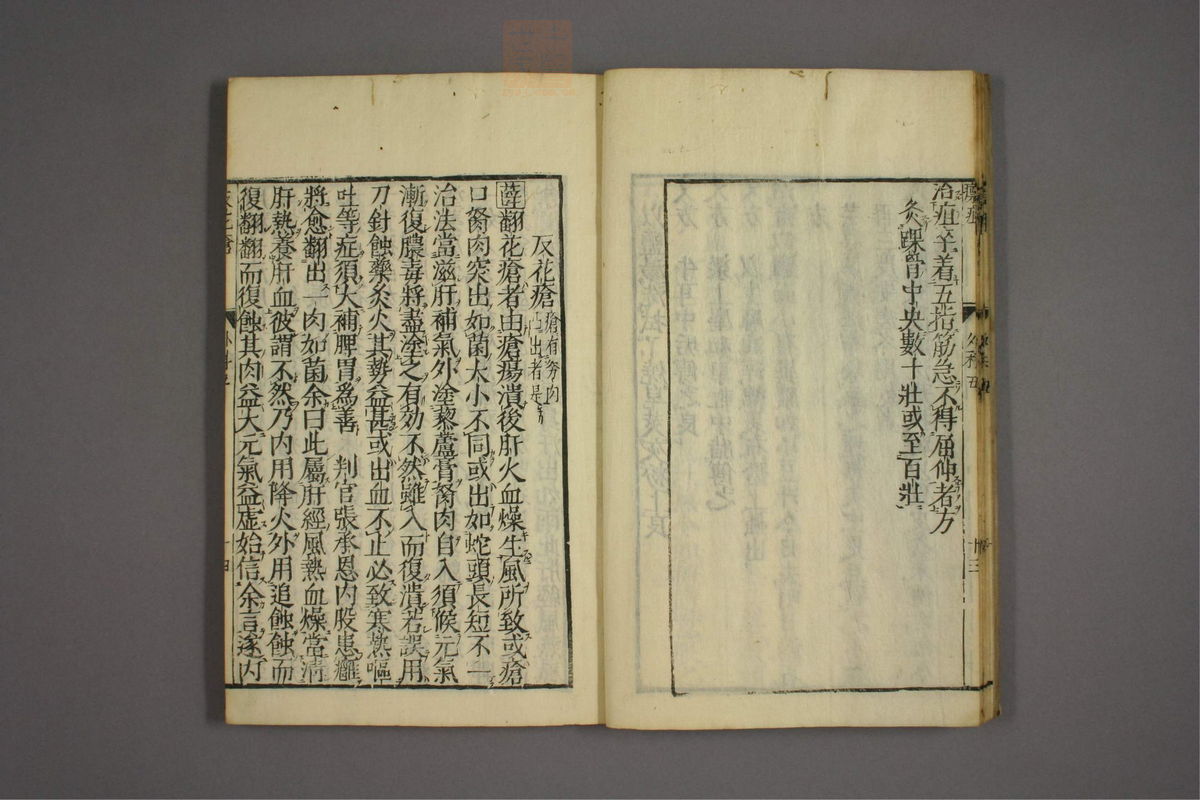 治疽卒着五指筋急不得屈伸者方
灸踝骨中央數十壯或至百壯
反花瘡瘡有努肉凸出者是
薛翻花瘡者由瘡瘍潰後肝火血燥生風所致或瘡
口努肉突出如菌大小不同或出如蛇頭長短不一
治法當滋肝補氣外塗藜蘆膏努肉自入須候元氣
漸復膿毒將盡塗之有効不然雖入而復潰若誤用
刀針蝕藥灸火其勢益甚或出血不止必致寒熱嘔
吐等症須大補脾胃爲善 判官張承恩内股患癰
將愈翻出一肉如菌余曰此屬肝經風熱血燥當清
肝熱養肝血彼謂不然乃内用降火外用追蝕蝕而
復翻翻而復蝕其肉益大元氣益虛始信余言遂内